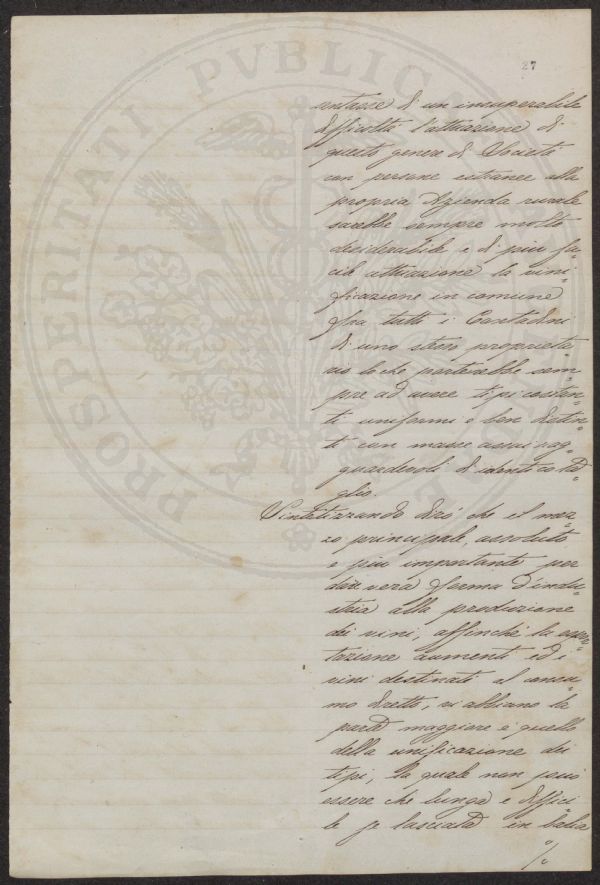 27
di un insuperabile
difficoltà l'attuazione di
questo genere di Società
con persone estranee alla
propria Azienda rurale
sarebbe sempre molto
desiderabile e di più fa-
cile attuazione la vini-
ficazione in comune
fra tutti i Contadini
di uno stesso proprieta-
rio lo che porterebbe sem-
pre ad avere tipi costan-
ti uniformi e ben distin-
ti con masse assai rag-
guardevoli di identico ta-
glio.
Sintetizzando dirò che il mez-
zo principale, assoluto
e più importante per
dare vera forma d'indu-
stria alla produzione
dei vini, affinchè la espor-
tazione aumenti ed i
vini destinati al consu-
mo diretto, vi abbiano la
parte maggiore è quello
della unificazione dei
tipi, la quale non può
essere che lunga e diffici-
le se lasciata in balia
./.
PROSPERITATI PVBLICAE